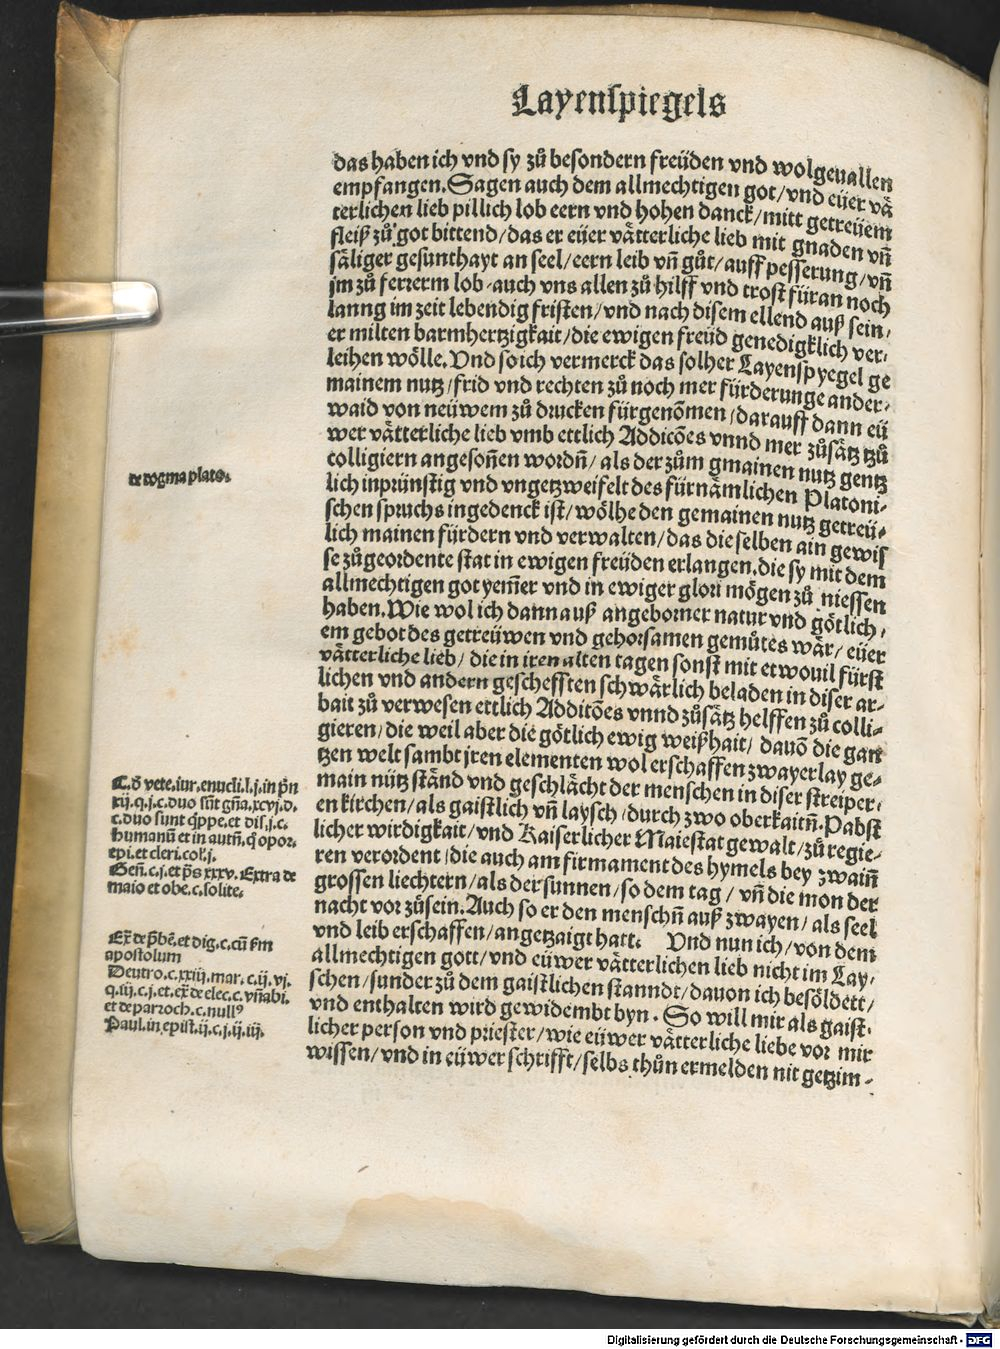 Layenspiegels
das haben ich vnd sy zů besondern freüden vnd wolgeuallen
empfangen. Sagen auch dem allmechtigen got / vnd eüer vä
terlichen lieb pillich lob eern vnd hohen danck / mitt getreüem
fleiß zů got bittend / das er eüer vätterliche lieb mit gnaden vñ
säliger gesunthayt an seel / eern leib vñ gůt / auff pesserung / vñ
jm zů ferrerm lob / auch vns allen zů hilff vnd trost füran noch
lanng im zeit lebendig fristen / vnd nach disem ellend auß sein /
er milten barmhertzigkait / die ewigen freüd genedigklich ver /
leihen wölle. Vnd so ich vermerck das solher Layenspyegel ge
mainem nutz / frid vnd rechten zů noch mer fürderunge ander /
waid von neüwem zů drucken fürgenõmen / darauff dann eü
wer vätterliche lieb vmb ettlich Addicões vnnd mer zůsätz tzů
colligiern angesoñen wordñ / als der zům gmainen nutz gentz
lich inprünstig vnd vngetzweifelt des fürnämlichen Platoni /
schen spruchs ingedenck ist / wölhe den gemainen nutz getreü /
lich mainen fürdern vnd verwalten / das die selben ain gewis
se zůgeordente stat in ewigen freüden erlangen. die sy mit dem
allmechtigen got yem̃er vnd in ewiger glori mögen zů niessen
haben. Wie wol ich dann auß angeborner natur vnd götlich /
em gebot des getreüwen vnd gehorsamen gemůtes wär / eüer
vätterliche lieb / die in iren alten tagen sonst mit etwouil fürst
lichen vnd andern gescheff̃ten schwärlich beladen in diser ar /
bait zů verwesen ettlich Additões vnnd zůsätz helffen zů colli /
gieren / die weil aber die götlich ewig weißhait / dauõ die gan
tzen welt sambt jren elementen wol erschaffen zwayerlay ge /
main nütz ständ vnd geschlächt der menschen in diser streiper /
en kirchen / als gaistlich vñ laysch / durch zwo oberkaitñ. Pabst
licher wirdigkait / vnd Kaiserlicher Maiestat gewalt / zů regie /
ren verordent / die auch am firmament des hymels bey zwaiñ
grossen liechtern / als der sunnen / so dem tag / vñ die mon der
nacht vor zůsein. Auch so er den menschñ auß zwayen / als seel
vnd leib erschaffen / angetzaigt hatt. Vnd nun ich / von dem
allmechtigen gott / vnd eüwer vätterlichen lieb nicht im Lay /
schen / sunder zů dem gaistlichen stanndt / dauon ich besöldett /
vnd enthalten wird gewidembt byn. So will mir als gaist /
licher person vnd priester / wie eüwer vätterliche liebe vor mir
wissen / vnd in eüwer schrifft / selbs thůn ermelden nit getzim /
de dogma plato.
C. ð vete. iur. enucli. l. j. in pñ
xij. q. j. c. duo sũt gña. xcvj. d.
c. duo sunt q̃ppe. et dis. j. c.
humanũ et in autñ. q̃ opor.
epi. et cleri. col. j.
Geñ. c. j. et p̃s xxxv. Extra de
maio et obe. c. solite.
Ex̃ de p̃bẽ. et dig. c. cũ s̃m
apostolum
Deutro. c. xxiij. mar. c. ij. vj.
q. iij. c. j. et. ex̃ de elec. c. vñabi.
et de parroch. c. null⁹
Paul. in epist. ij. c. j. ij. iij.
Digitalisierung gefördert durch die Deutsche Forschungsgemeinschaft - DFG